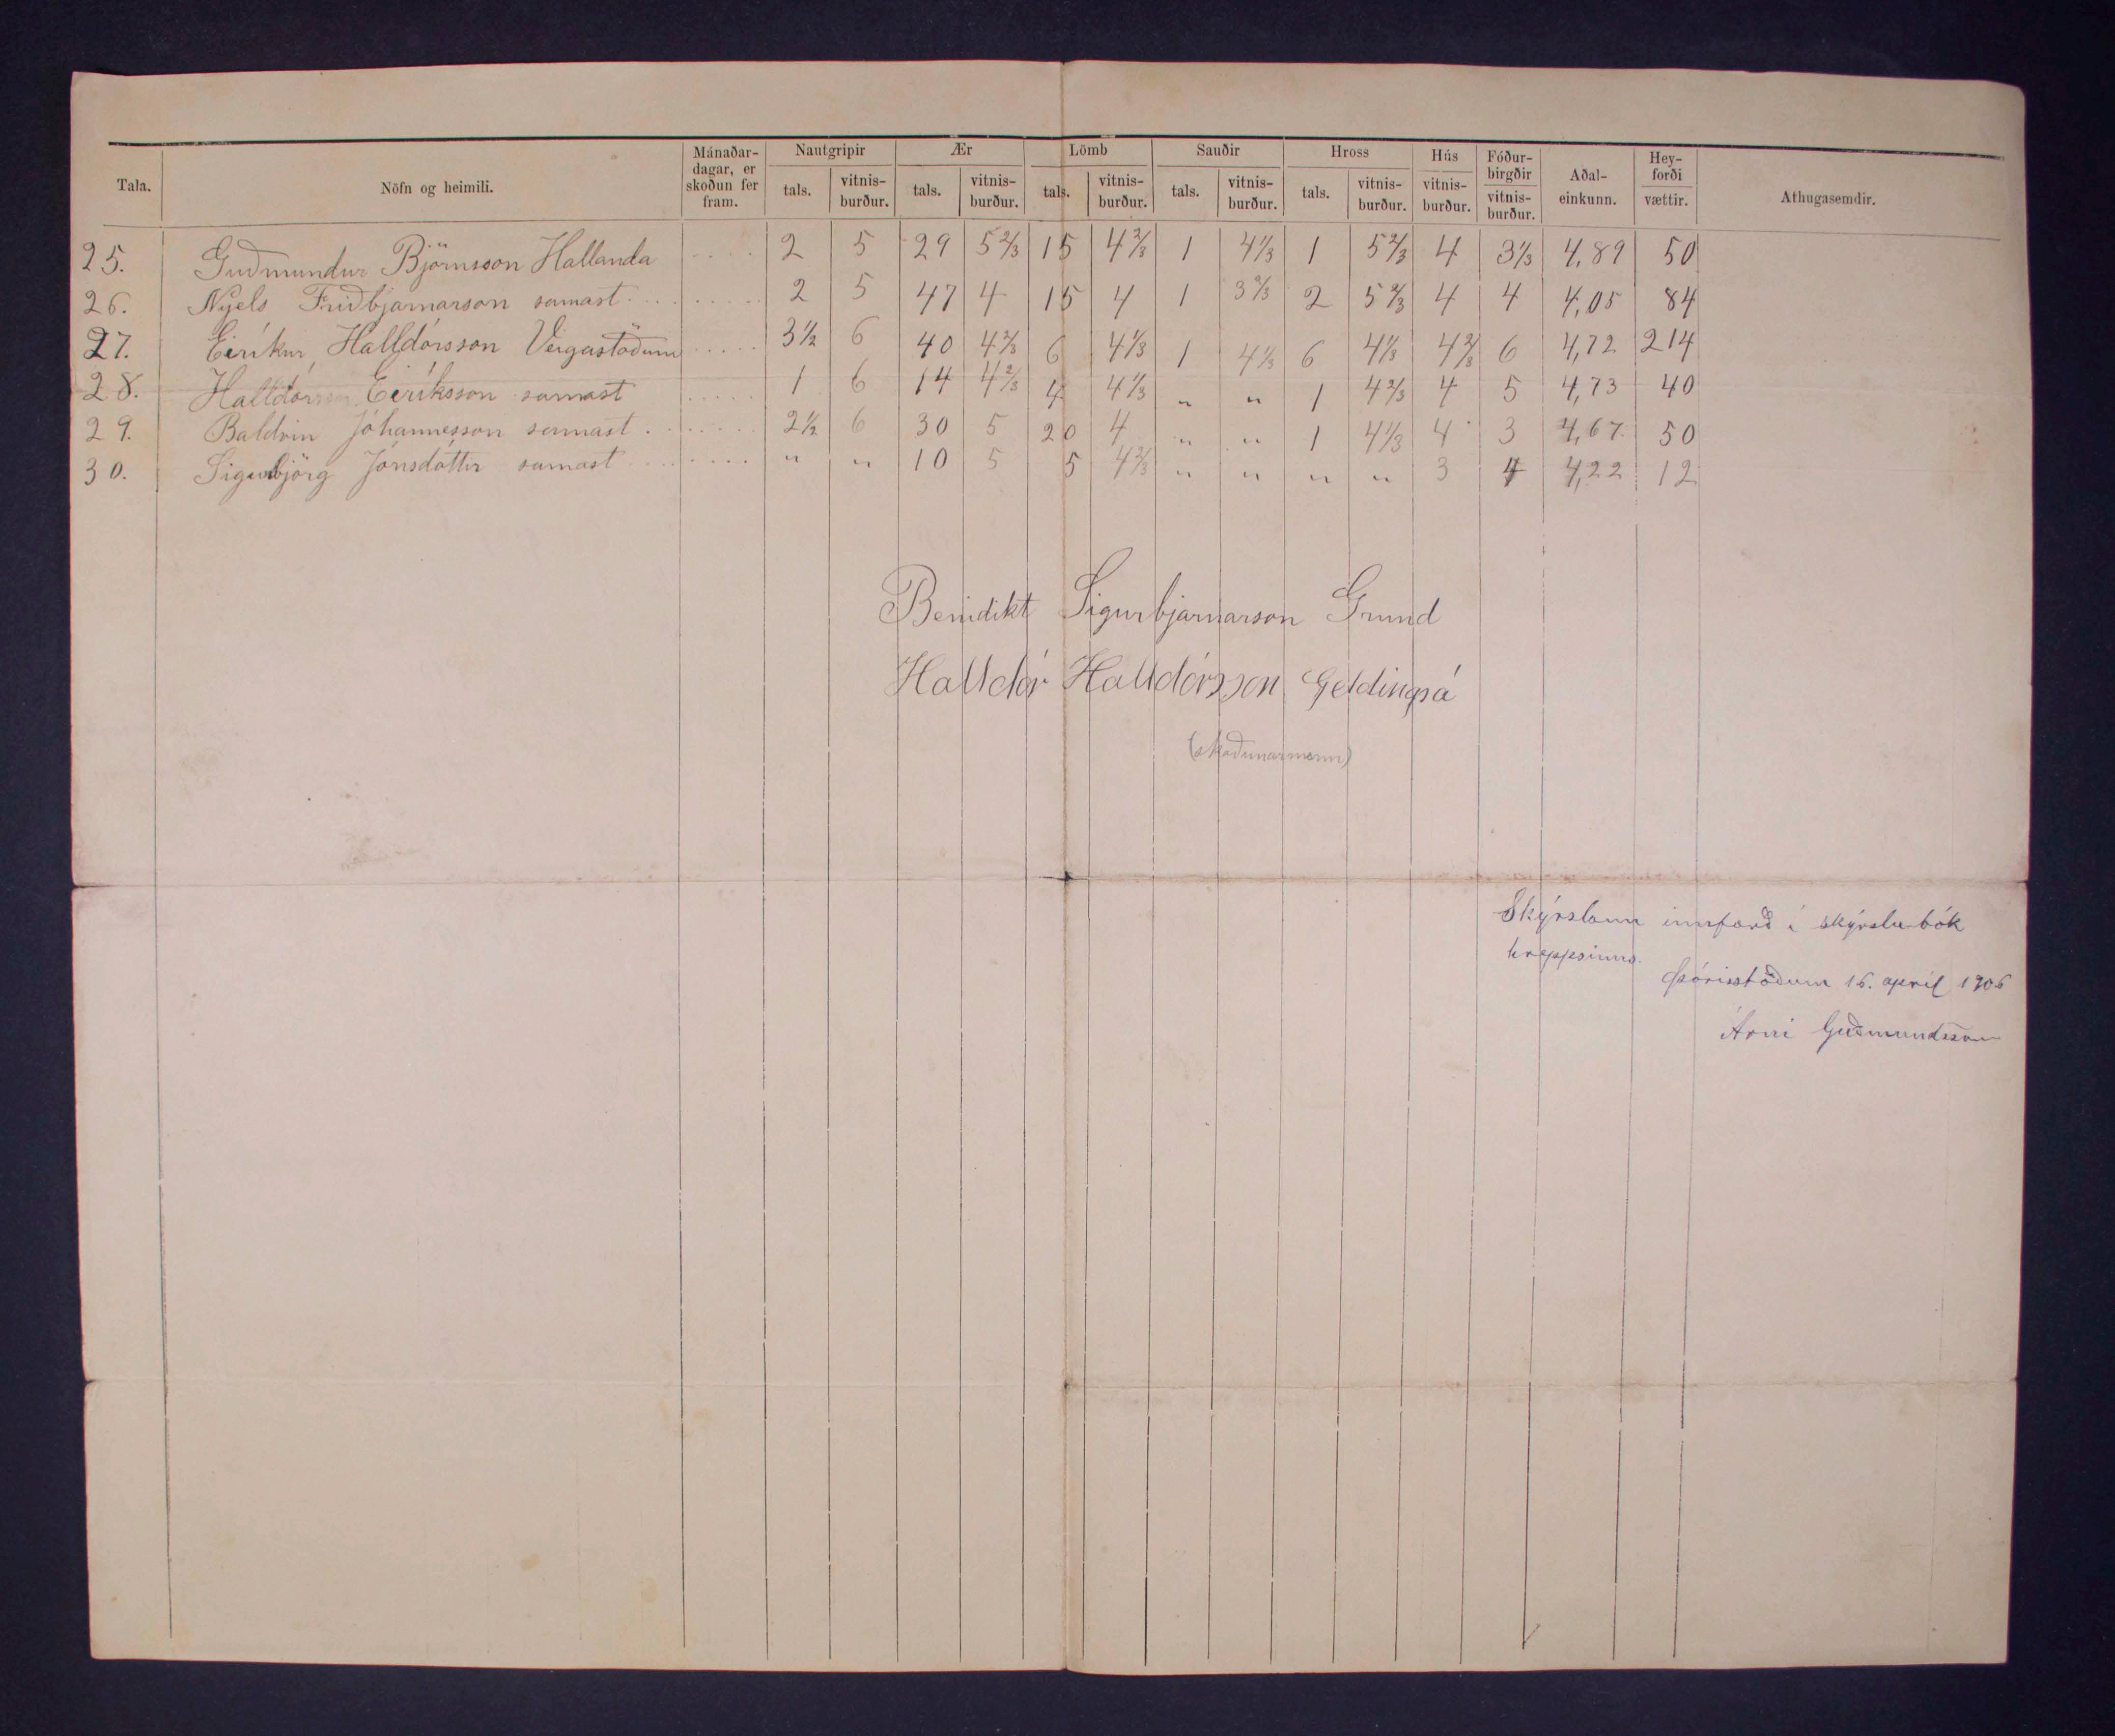 Tala. Nöfn og heimili. Mánaðar- dagar, er skoðun fer fram. Nautgripir Ær Lömb Sauðir Hross Hús Fóður- birgðir Aðal- einkunn. Hey- forði Athugasemdir.
tals. vitnis- burður. tals. vitnis- burður. tals. vitnis- burður. tals. vitnis- burður. tals. vitnis- burður. vitnis- burður. vitnis- burður. vættir.
25. Guðmundur Björnsson Hallanda 2 5 29 5 2/3 15 4 2/3 1 4 1/3 1 5 2/3 4 3 1/3 4,89 50
26. Nyels Friðbjarnarson samast 2 5 47 4 15 4 1 3 2/3 2 5 2/3 4 4 4,05 84
27. Eiríkur Halldórsson Veigastöðum 3 1/2 6 40 4 2/3 6 4 1/3 1 4 1/3 6 4 1/3 4 2/3 6 4,72 214
28. Halldór Eiríksson samast 1 6 14 4 2/3 4 4 1/3 " " 1 4 2/3 4 5 4,73 40
29. Baldvin Jóhannesson samast 2 1/2 6 30 5 20 4 " " 1 4 1/3 4 3 4,67 50
30. Sigurbjörg Jónsdóttir samast " " 10 5 5 4 2/3 " " " " 3 4 4,22 12
Benidikt Sigurbjarnarson Grund
Halldór Halldórsson Geldingsá
(skoðunarmenn)
Skýrslann innfærð í skýrslubók
hreppsinns.
Þórisstöðum 16. apríl 1906
Árni Guðmundsson